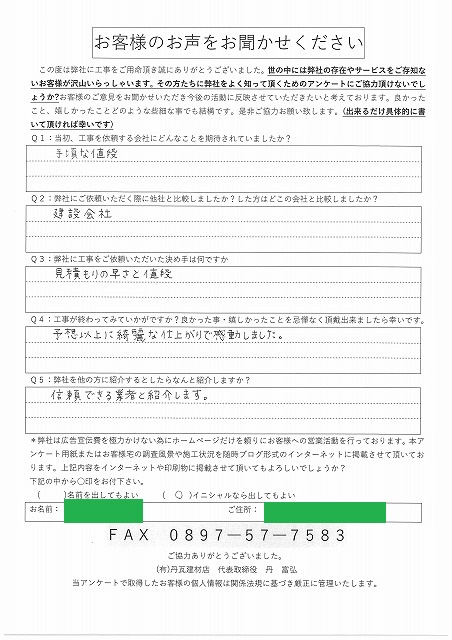 お客様のお声をお聞かせください
この度は弊社に工事をご用命頂き誠にありがとうございました。世の中には弊社の存在やサービスをご存知な
いお客様が沢山いらっしゃいます。その方たちに弊社をよく知って頂くためのアンケートにご協力頂けないでし
ょうか?お客様のご意見をお聞かせいただき今後の活動に反映させていただきたいと考えております。良かった
こと、嬉しかったことどのような些細な事でも結構です。是非ご協力お願い致します。(出来るだけ具体的に書
いて頂ければ幸いです)
Q1:当初、工事を依頼する会社にどんなことを期待されていましたか?
手頃な値段
Q2:弊社にご依頼いただく際に他社と比較しましたか?した方はどこの会社と比較しましたか?
建設会社
Q3:弊社に工事をご依頼いただいた決め手は何ですか
見積もりの早さと値段
Q4:工事が終わってみていかがですか?良かった事・嬉しかったことを忌憚なく頂戴出来ましたら幸いです。
予想以上に綺麗な仕上がりで感動しました。
Q5:弊社を他の方に紹介するとしたらなんと紹介しますか?
信頼できる業者と紹介します。
*弊社は広告宣伝費を極力かけない為にホームページだけを頼りにお客様への営業活動を行っております。本ア
ンケート用紙またはお客様宅の調査風景や施工状況を随時ブログ形式のインターネットに掲載させて頂いてお
ります。上記内容をインターネットや印刷物に掲載させて頂いてもよろしいでしょうか?
下記の中から〇印をお付下さい。
( )名前を出してもよい ( 〇 )イニシャルなら出してもよい
お名前: ご住所:
FAX 0897-57-7583
ご協力ありがとうございました。
(有)丹瓦建材店 代表取締役 丹 富弘
当アンケートで取得したお客様の個人情報は関係法規に基づき厳正に管理いたします。